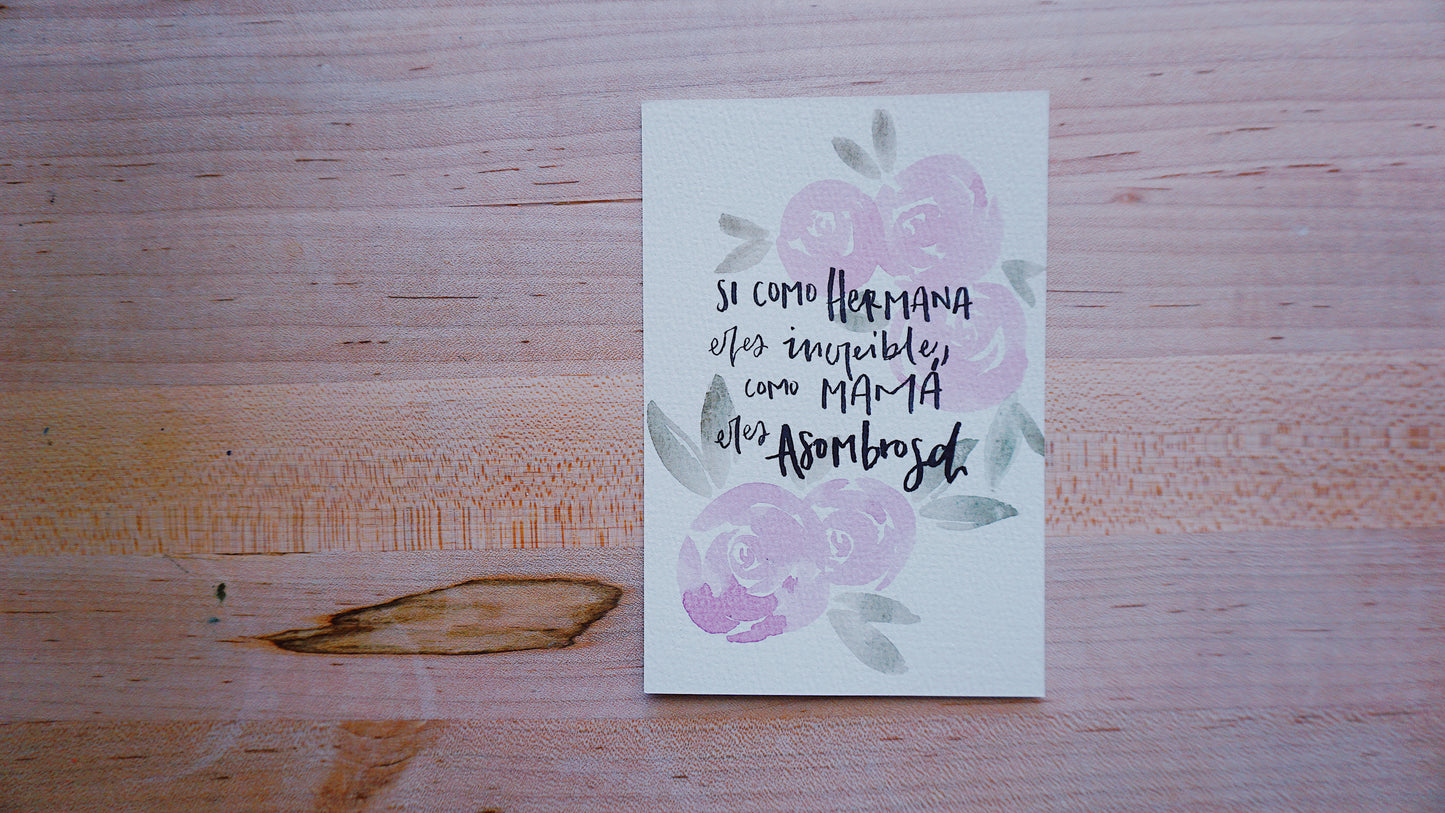 SI COMO HERMANA
eres increible,
COMO MAMÁ
eres ASOMBROSA